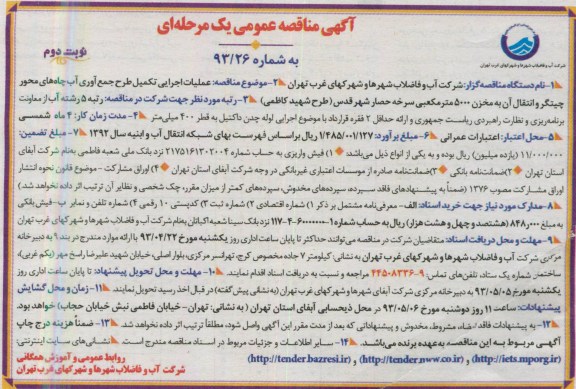 آگهی مناقصه عمومی یک مرحله‌ای
به شماره ۹۳/۲۶
نوبت دوم
شرکت آب و فاضلاب شهرها و شهرکهای غرب تهران
۱-نام دستگاه مناقصه‌گزار: شرکت آب و فاضلاب شهرها و شهرکهای غرب تهران ۲-موضوع مناقصه: عملیات اجرایی تکمیل طرح جمع‌آوری آب چاه‌های محور
چیتگر و انتقال آن به مخزن ۵۰۰۰ مترمکعبی سرخه حصار شهر قدس (طرح شهید کاظمی) ۳-رتبه مورد نظر جهت شرکت در مناقصه: رتبه ۵ رشته آب از معاونت
برنامه‌ریزی و نظارت راهبردی ریاست جمهوری و ارائه حداقل ۲ فقره قرارداد با موضوع اجرایی لوله چدن داکتیل به قطر ۴۰۰ میلی‌متر ۴- مدت زمان کار: ۴ ماه شمسی
۵-محل اعتبار: اعتبارات عمرانی ۶-مبلغ برآورد: ۱/۴۸۵/۰۰۱/۱۲۷ ریال براساس فهرست بهای شبکه انتقال آب و ابنیه سال ۱۳۹۲ ۷-مبلغ تضمین:
۱۱/۰۰۰/۰۰۰ (یازده میلیون) ریال بوده و به یکی از انواع ذیل می‌باشد: ۱) فیش واریزی به حساب شماره ۲۱۷۵۱۶۱۳۰۲۰۰۴ نزد بانک ملی شعبه فاطمی به‌نام شرکت آبفای
استان تهران ۲) ضمانتنامه بانکی ۳) ضمانتنامه صادره از موسسات اعتباری غیربانکی در وجه شرکت آبفای استان تهران ۴) اوراق مشارکت - موضوع قانون نحوه انتشار
اوراق مشارکت مصوب ۱۳۷۶ (ضمناً به پیشنهادهای فاقد سپرده، سپرده‌های مخدوش، سپرده‌های کمتر از میزان مقرر، چک شخصی و نظایر آن ترتیب اثر داده نخواهد شد.)
۸-مدارک مورد نیاز جهت خرید اسناد: الف -معرفی‌نامه مشتمل بر ذکر ۱) شماره اقتصادی ۲) شماره ثبت ۳) کدپستی ۱۰ رقمی ۴) شماره تلفن و نمابر ب-فیش بانکی
به مبلغ ۸۴۸/۰۰۰ (هشتصد و چهل و هشت هزار) ریال به حساب شماره نزد بانک سینا شعبه اکباتان به‌نام شرکت آب و فاضلاب شهرها و شهرکهای غرب تهران
۹-مهلت و محل دریافت اسناد: متقاضیان شرکت در مناقصه می‌توانند حداکثر تا پایان ساعت اداری روز یکشنبه مورخ ۹۳/۰۴/۲۲ با ارائه موارد مندرج در بند ۹ به دبیرخانه
مرکزی شرکت آب و فاضلاب شهرها و شهرکهای غرب تهران به نشانی: کیلومتر ۷ جاده مخصوص کرج، تهرانسر مرکزی، بلوار اصلی، خیابان شهید علیرضا راسخ مهر (یکم غربی)،
ساختمان شماره یک ستاد، تلفن‌های تماس: ۹-۴۴۵۰۸۳۳۶ مراجعه و نسبت به دریافت اسناد اقدام نمایند. ۱۰- مهلت و محل تحویل پیشنهاد: تا پایان ساعت اداری روز
یکشنبه مورخ ۹۳/۰۵/۰۵ به دبیرخانه مرکزی شرکت آبفای شهرها و شهرکهای غرب تهران (به‌نشانی پیش‌گفته) در قبال اخذ رسید تحویل نمایند. ۱۱-زمان و محل گشایش
پیشنهادات: ساعت ۱۱ روز دوشنبه مورخ ۹۳/۰۵/۰۶ در محل ذیحسابی آبفای استان تهران (به نشانی: تهران- خیابان فاطمی نبش خیابان حجاب) خواهد بود.
۱۲- به پیشنهادات فاقد امضاء، مشروط، مخدوش و پیشنهاداتی که بعد از مدت مقرر این آگهی واصل شود، مطلقاً ترتیب اثر داده نخواهد شد. ۱۳- ضمناً هزینه درج چاپ
آگهی مربوط به این مناقصه به‌عهده برنده می‌باشد. ۱۴- سایر اطلاعات و جزئیات مربوط در اسناد مناقصه مندرج است. نشانی‌های سایت اینترنتی:
(http://iets.mporg.ir) , (http://tender.nww.co.ir) , (http://tender.bazresi.ir)
روابط عمومی و آموزش همگانی
شرکت آب و فاضلاب شهرها و شهرکهای غرب تهران